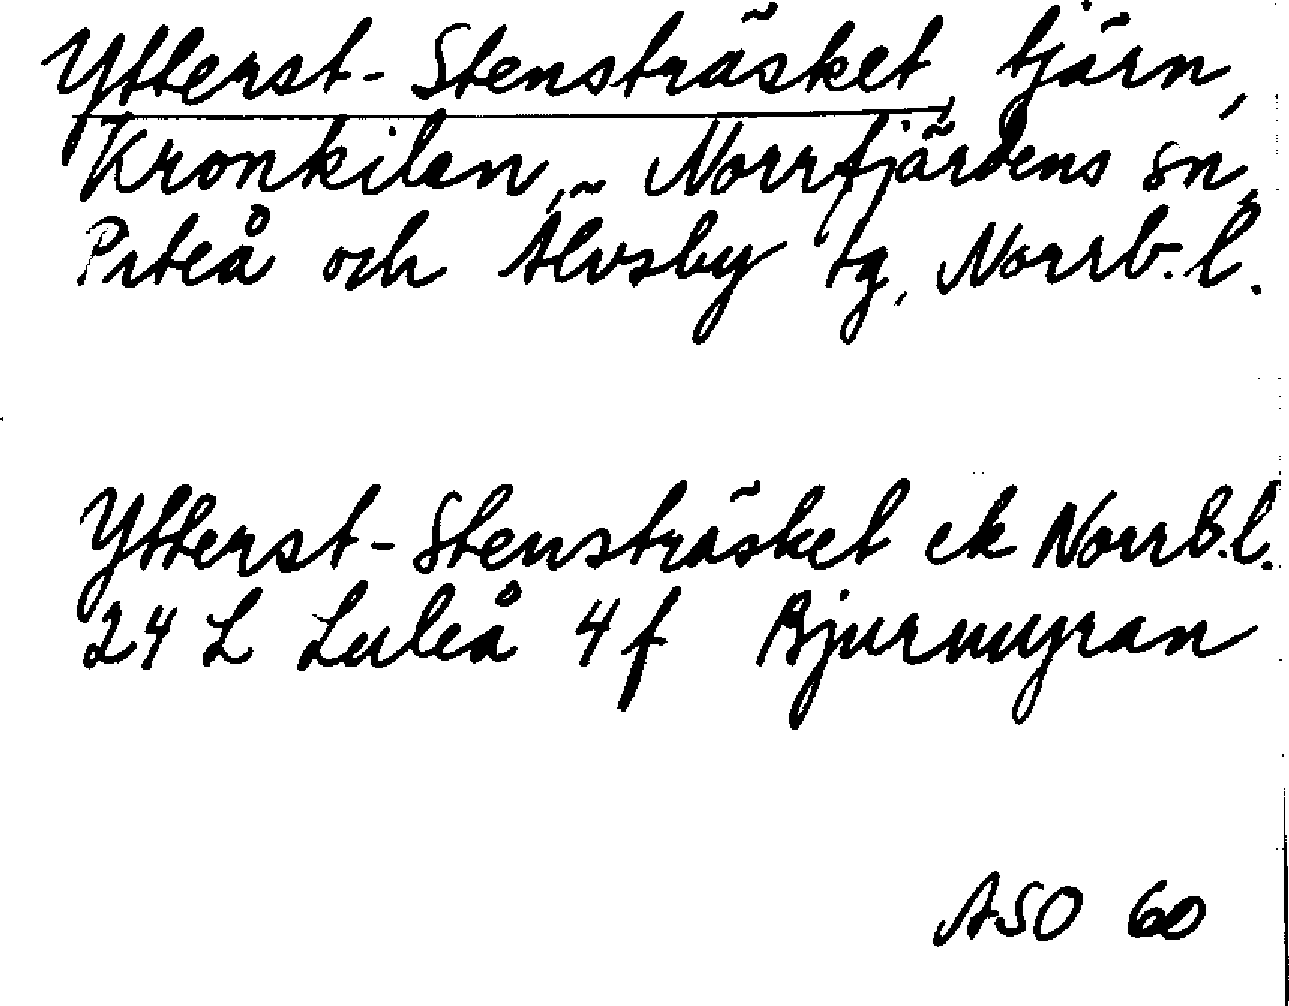 Ytterst-Stensträsket, tjärn,
Kronkilen, Norrfjärdens sn,
Piteå och Älvsby tg, Norrb.l.
Ytterst-Stensträsket ek Norrb.l.
24 L Luleå 4f Bjurmyran
ASO 60